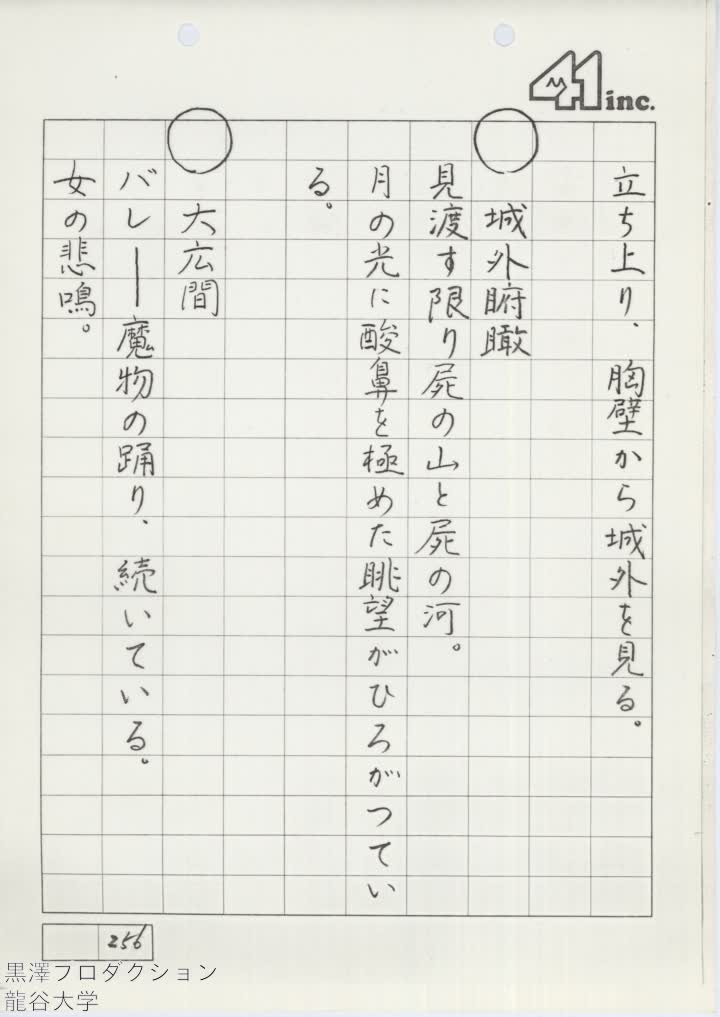 41 inc.
立ち上り、胸壁から城外を見る。
◯ 城外俯瞰
見渡す限り屍の山と屍の河。
月の光に酸鼻を極めた眺望がひろがつてい
る。
◯ 大広間
バレー――魔物の踊り、続いている。
女の悲鳴。
256
黒澤プロダクション
龍谷大学